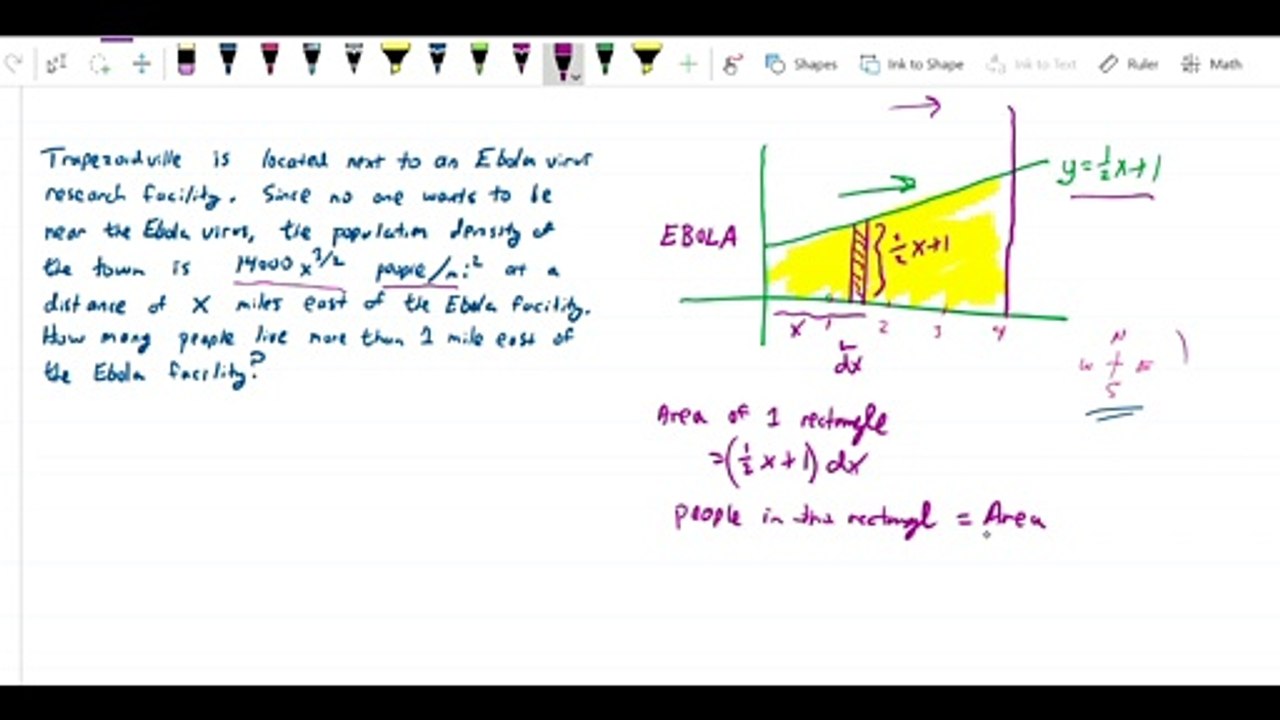 Shapes
Ink to Shape
Ink to Text
Ruler
Math
Trapezoidville is located next to an Ebola virus
research facility. Since no one wants to be
near the Ebola virus, the population density of
the town is 14000 x^3/2 people/mi^2 at a
distance of x miles east of the Ebola facility.
How many people live more than 1 mile east of
the Ebola facility?
y=1/2x+1
EBOLA
1/2x+1
x 1 2 3 4
dx
N
W E
S
Area of 1 rectangle
=(1/2x+1)dx
people in this rectangl = Area